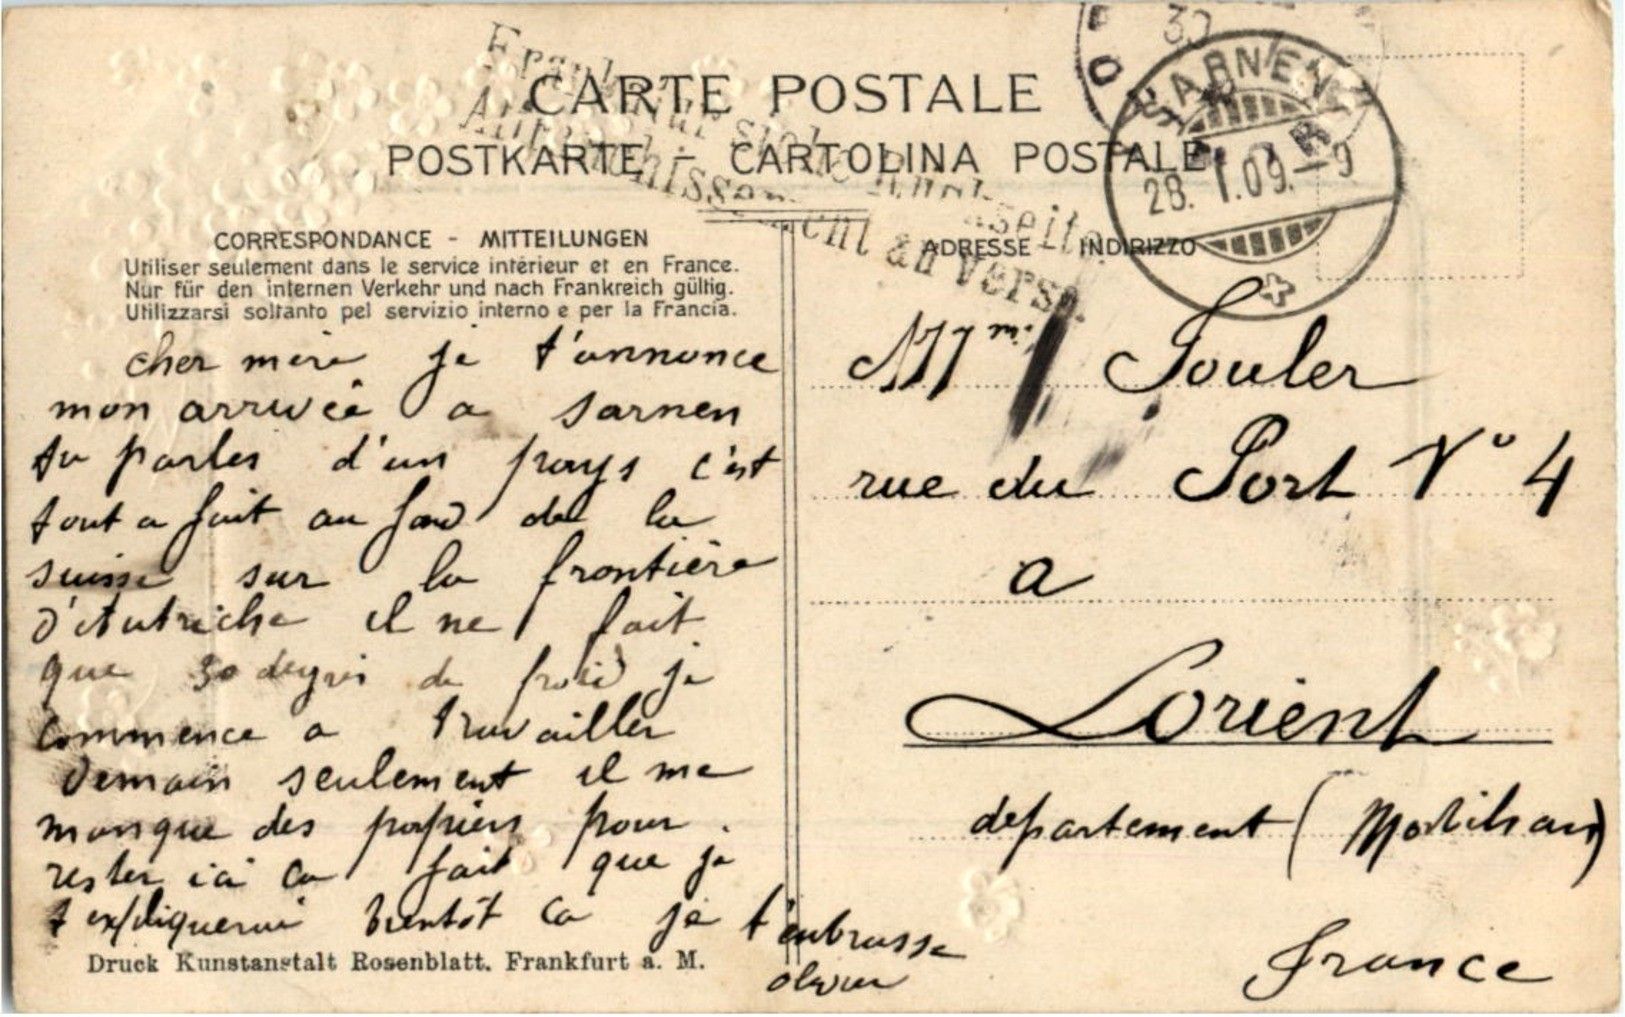 CARTE POSTALE
POSTKARTE - CARTOLINA POSTALE
SARNEN
28. I. 09. - 9
CORRESPONDANCE - MITTEILUNGEN
Utiliser seulement dans le service intérieur et en France.
Nur für den internen Verkehr und nach Frankreich gültig.
Utilizzarsi soltanto pel servizio interno e per la Francia.
ADRESSE INDIRIZZO
cher mère je t'annonce
mon arrivée a sarnen
tu parles d'un pays c'est
tout a fait au fond de la
suisse sur la frontière
d'Autriche il ne fait
que 30 degrés de froid je
commence a travailler
demain seulement il me
manque des papiers pour
rester ici ca fait que je
t expliquerai bientôt ca je t'enbrasse
olivier
Mme Souler
rue du Port No 4
a
Lorient
departement (Morbihan)
france
Druck Kunstanstalt Rosenblatt. Frankfurt a. M.